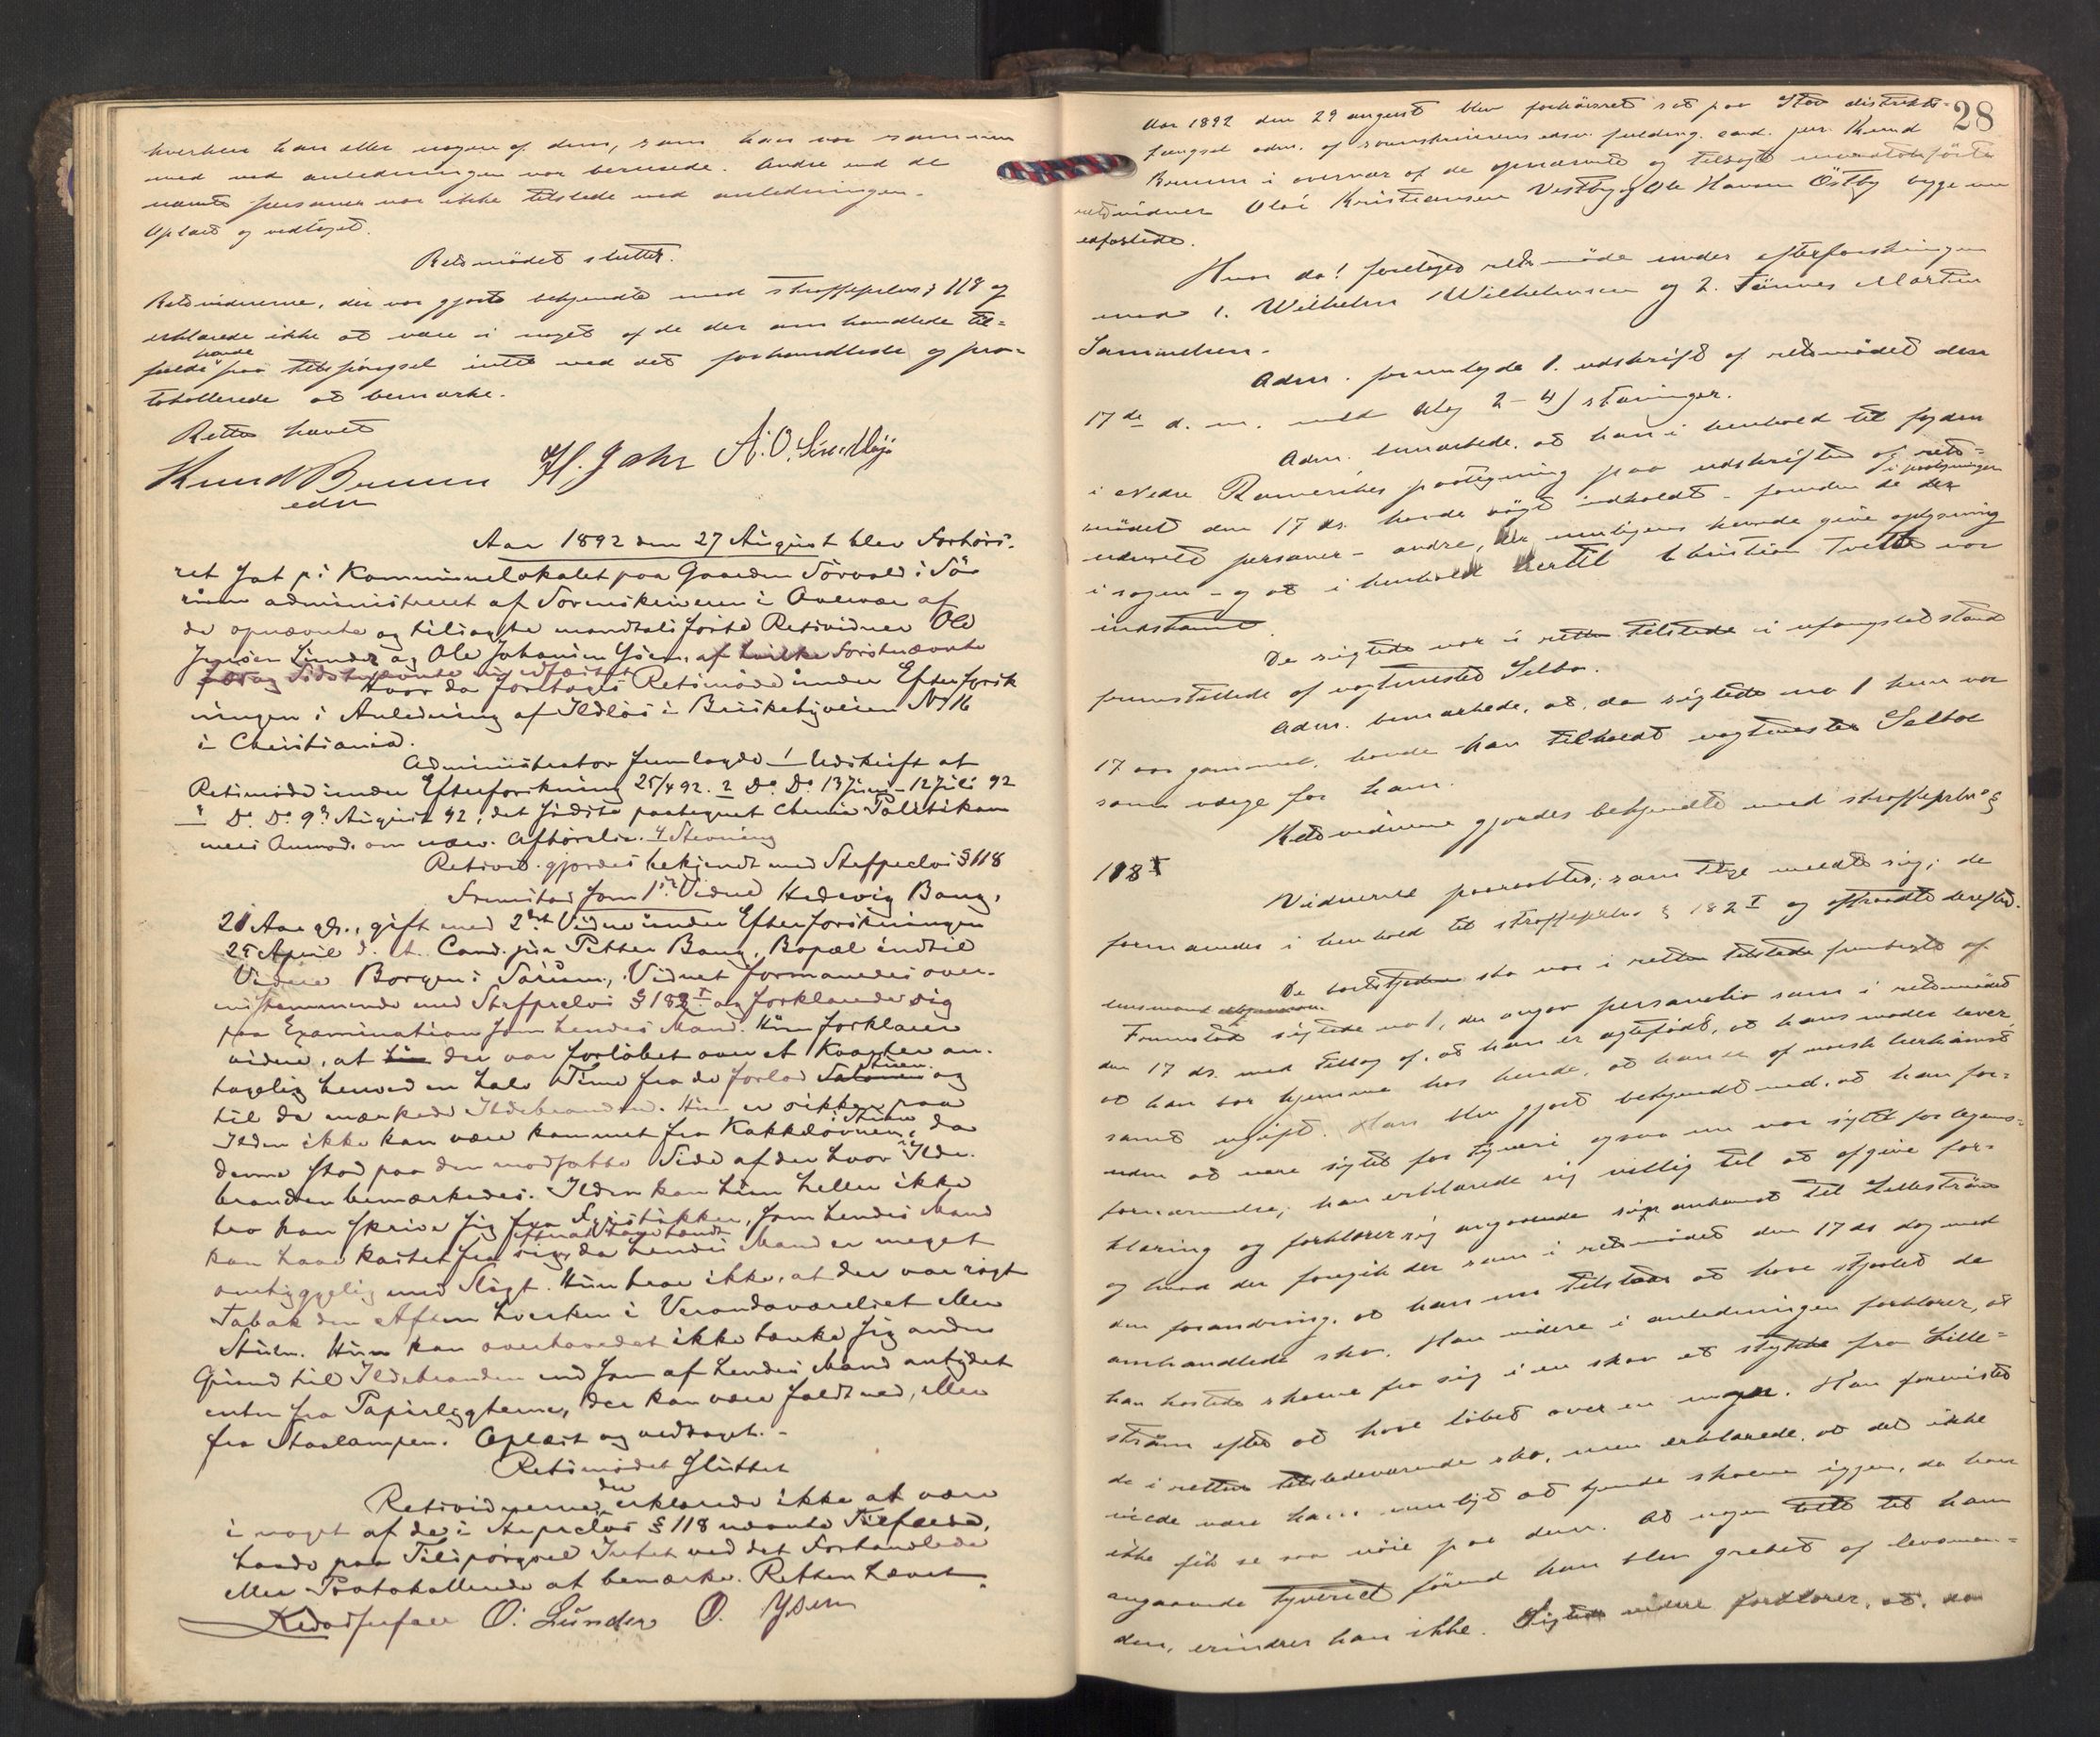 hverken han eller nogen af dem, som han var sammen
med ved anledningen var berusede. Andre end de
nævnte personer var ikke tilstede ved anledningen.
Oplæst og vedtaget.
Retsmødet sluttet.
Retsvidnerne, der var gjort bekjendt med straffeprlov § 118 og
erklærede ikke at være i noget af de der omhandlede til-
fælde havde paa tilspørgsel intet ved det forhandlede og pro-
tokollerede at bemærke.
Retten hævet
Knud Bruun H. Jahr A. O.
edsv
Aar 1892 den 27 August blev Forhørs-
ret sat på Kommunelokalet paa Gaarden Sørvald i Sø-
rum administreret af Sorenskriveren i Overvær af
de opnævnte og tilsagte mandtalsførte Retsvidner Ole
Jensen Lunder og Ole Johansen Ysern, af hvilke Førstnævnte
Sidstnævnte
Hvor da foretoges Retsmøde under Efterforsk
ningen i Anledning af Ildløs i Bيرkebyveien No 16
i Christiania.
Administrator fremlagde 1 Udskrift af
Retsmøde under Efterforskning 25/4 92. 2 Do Do 13 Juni – 12 Juli 92
3 Do Do 9de August 92, det sidste paategnet Chria Politikam
mers Anmod. om nærv. Afhørelse. 4 Stevning
Retsvid. gjordes bekjendt med Stfprclov § 118
Fremstod som 1ste Vidne Hedevig Bang,
21 Aar gl., gift med 2det Vidne under Efterforskningen
25 April d. A. Cand. jur Petter Bang, Bopæl indtil
Videre Borgen i Sørum. Vidnet formanedes over-
enstemmende med Stfprclov § 182 I og forklarede sig
paa Examination som hendes Mand. Hun forklarer
videre, at der var forløbet over et Kvarter an-
tagelig henved en halv Time fra de forlod Salonen Stuen og
til de mærkede Ildebranden. Hun er sikker paa
Ilden ikke kan være kommet fra Kakkelovnen i Stuen, da
denne stod paa den modsatte Side af der hvor Ilde-
branden bemærkedes. Ilden kan hun heller ikke
tro kan skrive sig fra Fyrstikken, som hendes Mand
kan have kastet fra sig, da hendes Mand er meget
omhyggelig med Sligt. Hun tror ikke, at der var røgt
Tabak den Aften hverken i Verandaværelset eller
Stuen. Hun kan overhovedet ikke tænke sig anden
Grund til Ildebranden end som af hendes Mand antydet
enten fra Papirlygterne, der kan være faldt ned, eller
fra Staalampen. Oplæst og vedtaget.-
Retsmødet sluttet
Retsvidnerne, der erklærede ikke at være
i noget af de i Stfprclov § 118 nævnte Tilfælde,
havde paa Tilspørgsel Intet ved det Forhandlede
eller Protokollerede at bemærke. Retten hævet.
O. Lunder O. Ysern
28
Aar 1892 den 29 august blev forhørsret sat paa distrikts-
fængsel adm. af sorenskriverens edsv. fuldmg. cand. jur. Knud
Bruun i overvær af de opnævnte og tilsagte mandtalsførte
retsvidner Olai Kristiansen Vestby og Ole Hansen Østby begge nu
edfæstede.
Hvor da! foretoges retsmøde under efterforskningen
mod 1. Wilhelm Wilhelmsen og 2. Tønnes Martin
Samuelsen.
Adm. fremlagde 1. udskrift af retsmødet den
17de d. m. med bilag 2 – 4) stævninger.
Adm. bemærkede, at han i henhold til fogden
i Nedre Romerikes paategning paa udskriften af rets-
mødet den 17 ds. havde søgt indkaldt – foruden de der i paategningen
nævnte personer – andre, der muligens kunde give oplysning
i sagen – og at i henhold hertil Christian Tveter var
indstævnt.
De sigtede var i retten tilstede i ufængslet stand
fremstillede af vagtmester Sæther.
Adm. bemærkede, at, da sigtede no 1 kun var
17 aar gammel, havde han tilkaldt vagtmester Sæther
som værge for ham.
Retsvidnerne gjordes bekjendte med straffeprlov §
118 I
Vidnerne paaraabtes, samtlige meldte sig; de
formanedes i henhold til straffeprlov § 182 I og aftraadte derefter.
De bortstjaalne sko var i retten tilstede frembragt af
lensmand
Fremstod sigtede no 1, der angav personalia som i retsmødet
den 17 ds. med tillæg af, at han er ægtefødt, at hans moder lever,
at han bor hjemme hos hende, at han er af norsk herkomst
samt ugift. Han blev gjort bekjendt med, at han for-
uden at være sigtet for tyveri ogsaa nu var sigtet for legems-
fornærmelse; han erklærede sig villig til at afgive for-
klaring og forklarer sig angaaende sin ankomst til Lillestrøm
og hvad der foregik der som i retsmødet den 17 ds dog med
den forandring, at han nu tilstaar at have stjaalet de
omhandlede sko. Han videre i anledningen forklarer, at
han kastede skoene fra sig i en skov et stykke fra Lille-
strøm efter at have løbet over en . Han forevistes
de i retten tilstedeværende sko, men erklærede, at det ikke
vilde være ham muligt at kjende skoene igjen, da han
ikke fik se saa nøie paa dem. At nogen talte til ham
angaaende tyveriet førend han blev grebet af lensman-
den, erindrer han ikke. Sigtede videre forklarer, at, da